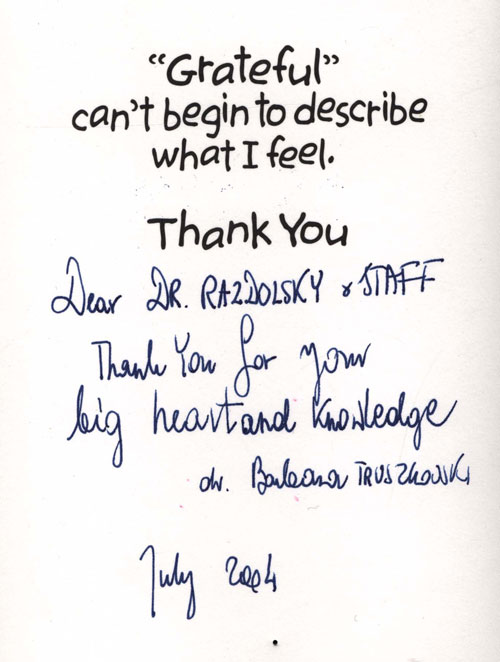 “Grateful”
can't begin to describe
what I feel.
Thank You
Dear DR. RAZDOLSKY & STAFF
Thank You for your
big heart and knowledge
dr. Barbara TRUSZKOWSKI
July 2004